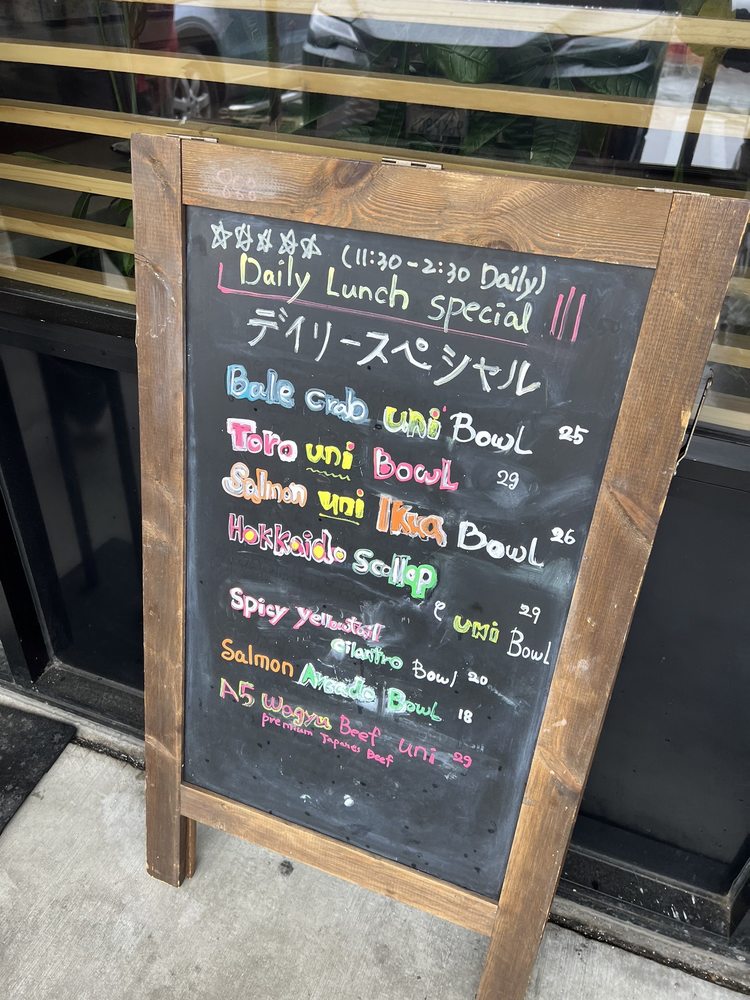 ☆☆☆☆☆ (11:30-2:30 Daily)
Daily Lunch special
デイリースペシャル
Bale crab uni Bowl 25
Toro uni Bowl 29
Salmon uni Ikura Bowl 26
Hokkaido Scallop
29
e uni Bowl
Spicy Yellowtail
Cilantro Bowl 20
Salmon Avcado Bowl 18
A5 Wagyu Beef uni 29
premium Japanes Beef